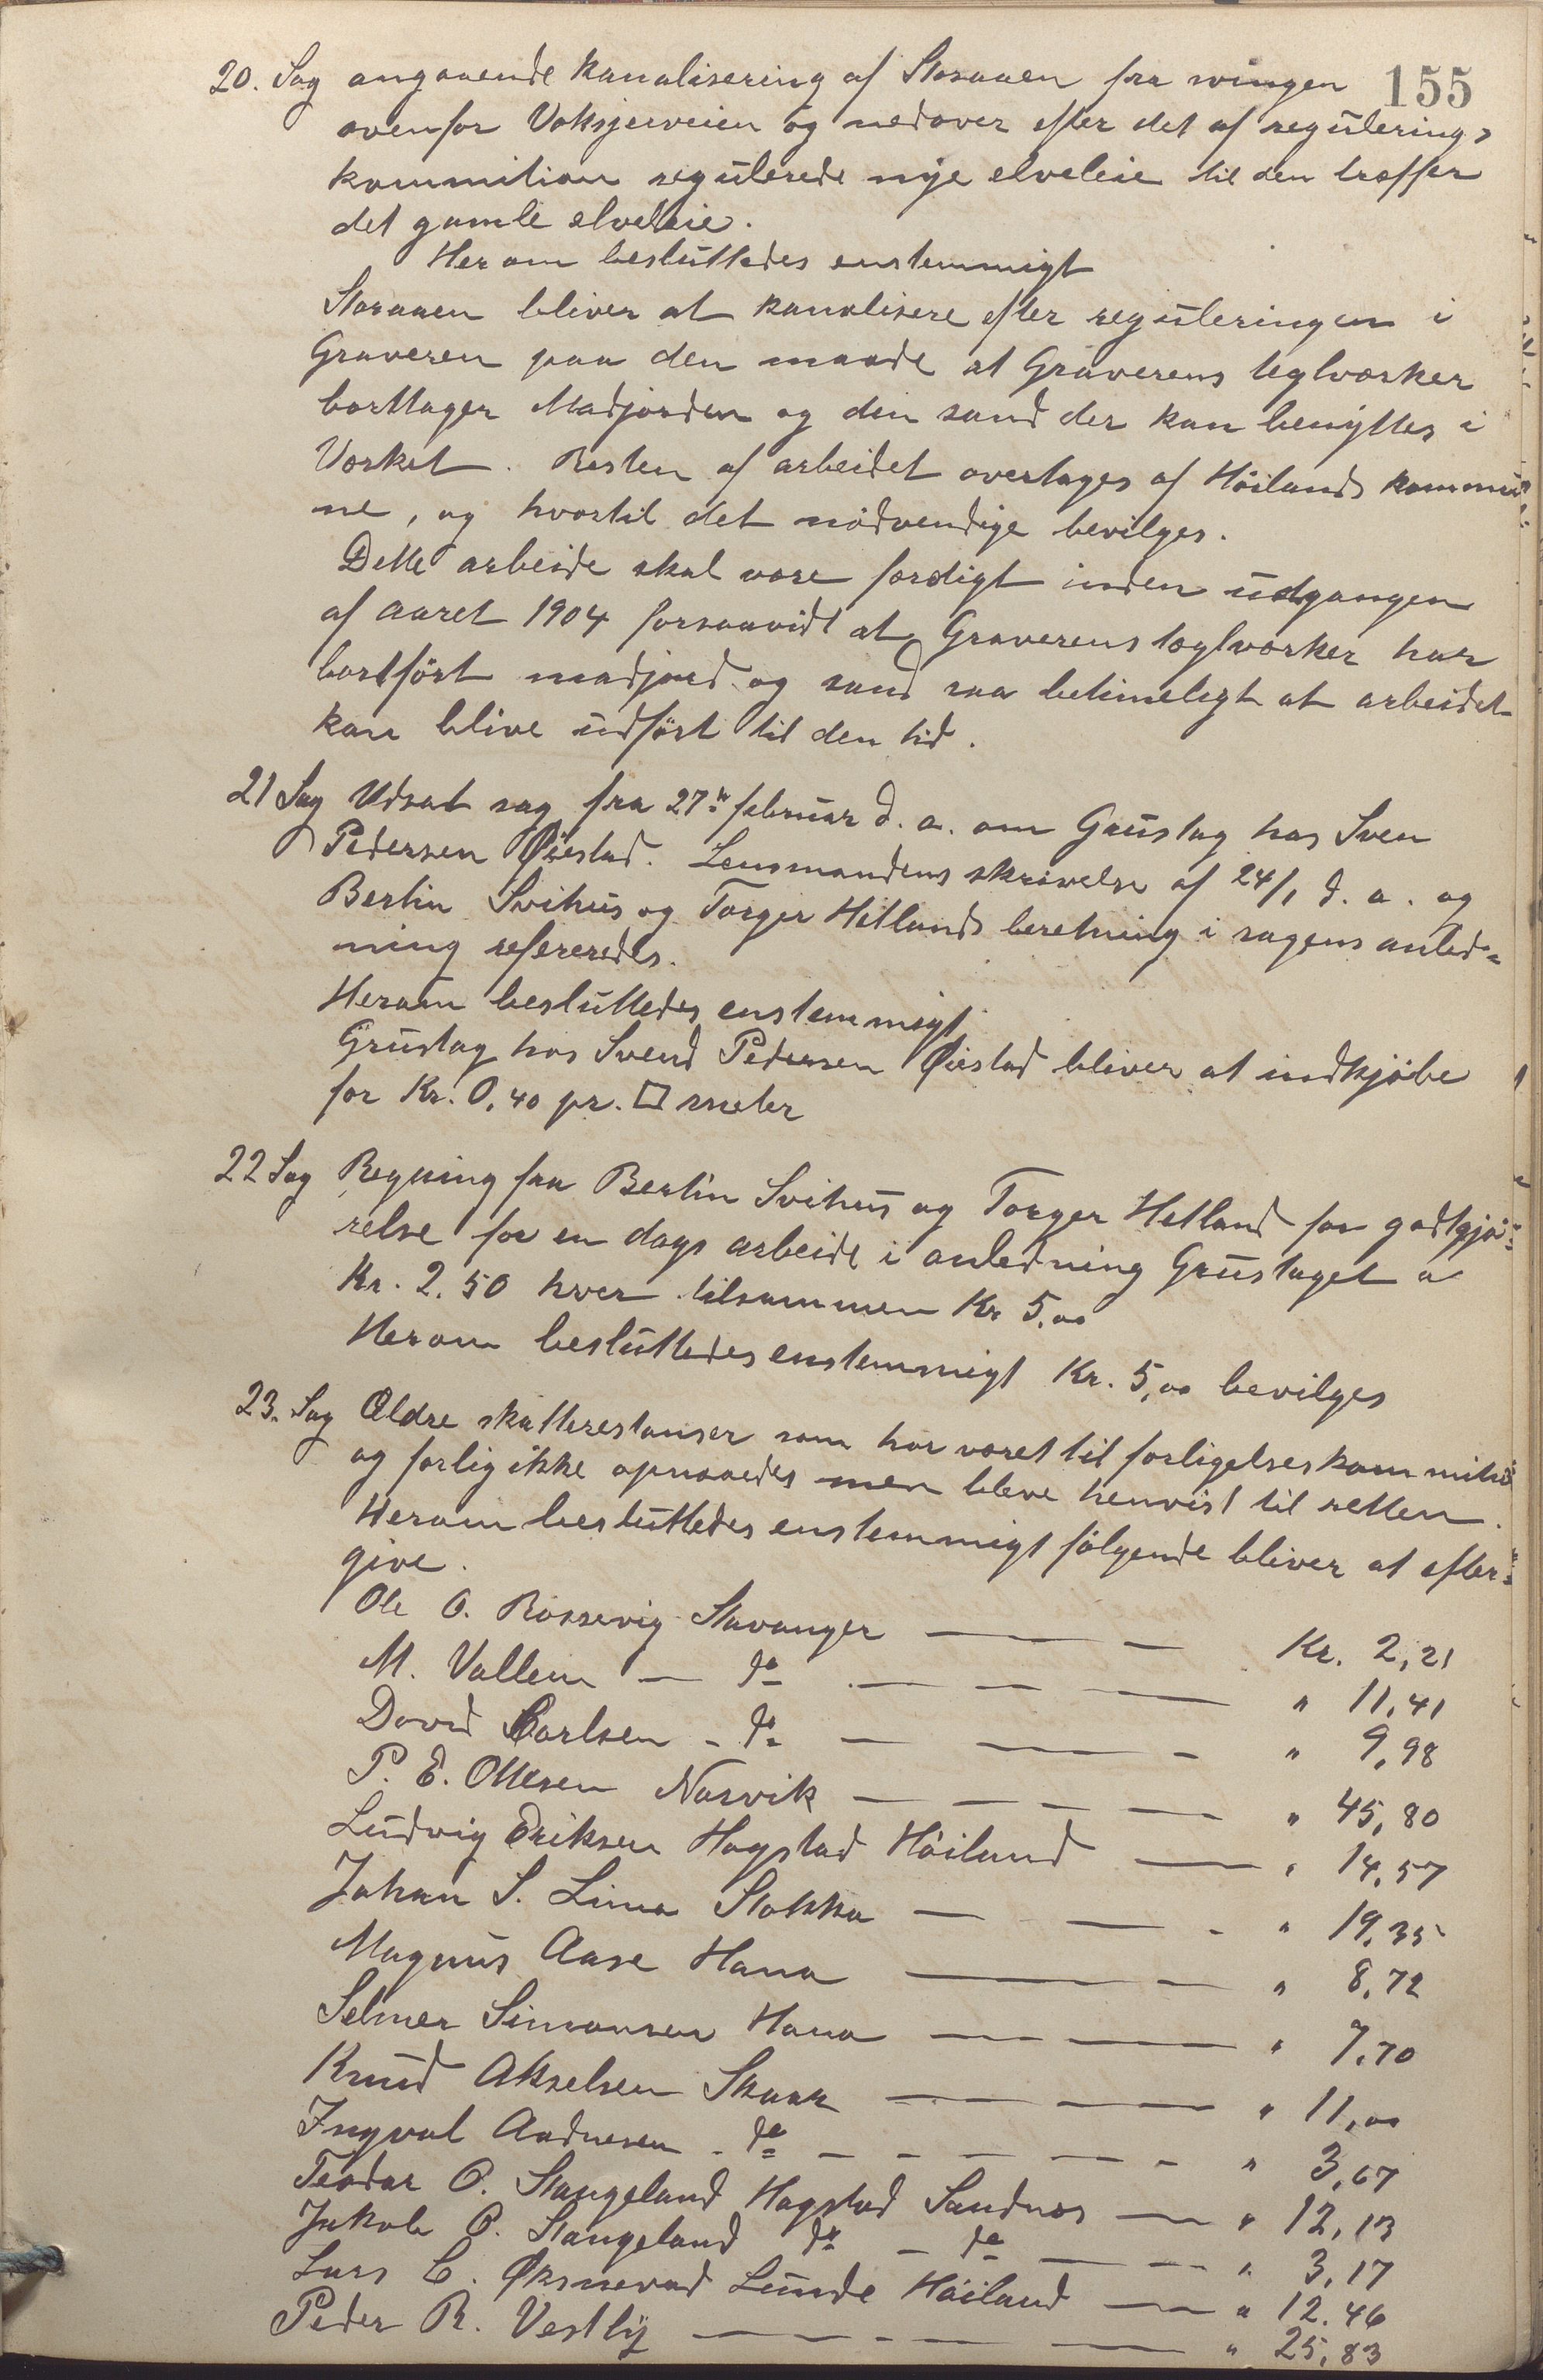 155
20. Sag angaaende kanalisering af Storaaen fra svingen
ovenfor Voksjerveien og nedover efter det af regulerings
kommition regulerede nye elveleie til den træffer
det gamle elveleie.
Herom besluttedes enstemmigt
Storaaen bliver at kanalisere efter reguleringen i
Graveren paa den maade at Graverens teglværker
borttager Madjorden og den sand der kan benyttes i
Værket. Resten af arbeidet overtages af Høilands kommu
ne, og hvortil det nødvendige bevilges.
Dette arbeide skal være færdigt inden udgangen
af aaret 1904 forsaavidt at Graverens teglværker har
bortført madjord og sand saa betimeligt at arbeidet
kan blive udført til den tid.
21 Sag Udsat sag fra 27de februar d. a. om Grustag hos Sven
Pedersen Øiestad. Lensmandens skrivelse af 24/1 d. a. og
Bertin Svihus og Torger Hetlands beretning i sagens anled-
ning refereredes.
Herom besluttedes enstemmigt
Grustag hos Svend Pedersen Øiestad bliver at indkjøbe
for Kr. 0,40 pr. □ meter
22 Sag Regning fra Bertin Svihus og Torger Hetland for godtgjø-
relse for en dags arbeide i anledning Grustaget a
Kr. 2.50 hver tilsammen Kr 5,00
Herom besluttedes enstemmigt Kr. 5,00 bevilges
23. Sag Ældre skatterestanser som har været til forligelseskommition
og forlig ikke opnaaedes men bleve henvist til retten.
Herom besluttedes enstemmigt følgende bliver at efter-
give.
Ole O. Rossevig Stavanger — — Kr. 2,21
M. Vallem — do — — — " 11,41
David Carlsen - do — — - " 9,98
P. E. Ottesen Narvik — — — — — " 45,80
Ludvig Eriksen Hogstad Høiland — " 14,57
Johan S. Lima Stokka — — - " 19,35
Magnus Aase Hana — — " 8,72
Selmer Simonsen Hana — — " 7,70
Knud Akselsen Skaar — — — " 11,00
Ingval Aadnesen - do — — — — — - " 3,67
Teodor O. Stangeland Hogstad Sandnes — " 12,13
Jakob O. Stangeland do — do — — " 3,17
Lars C. Øksnevad Lunde Høiland — " 12.46
Peder R. Vestly — — - — — " 25,83